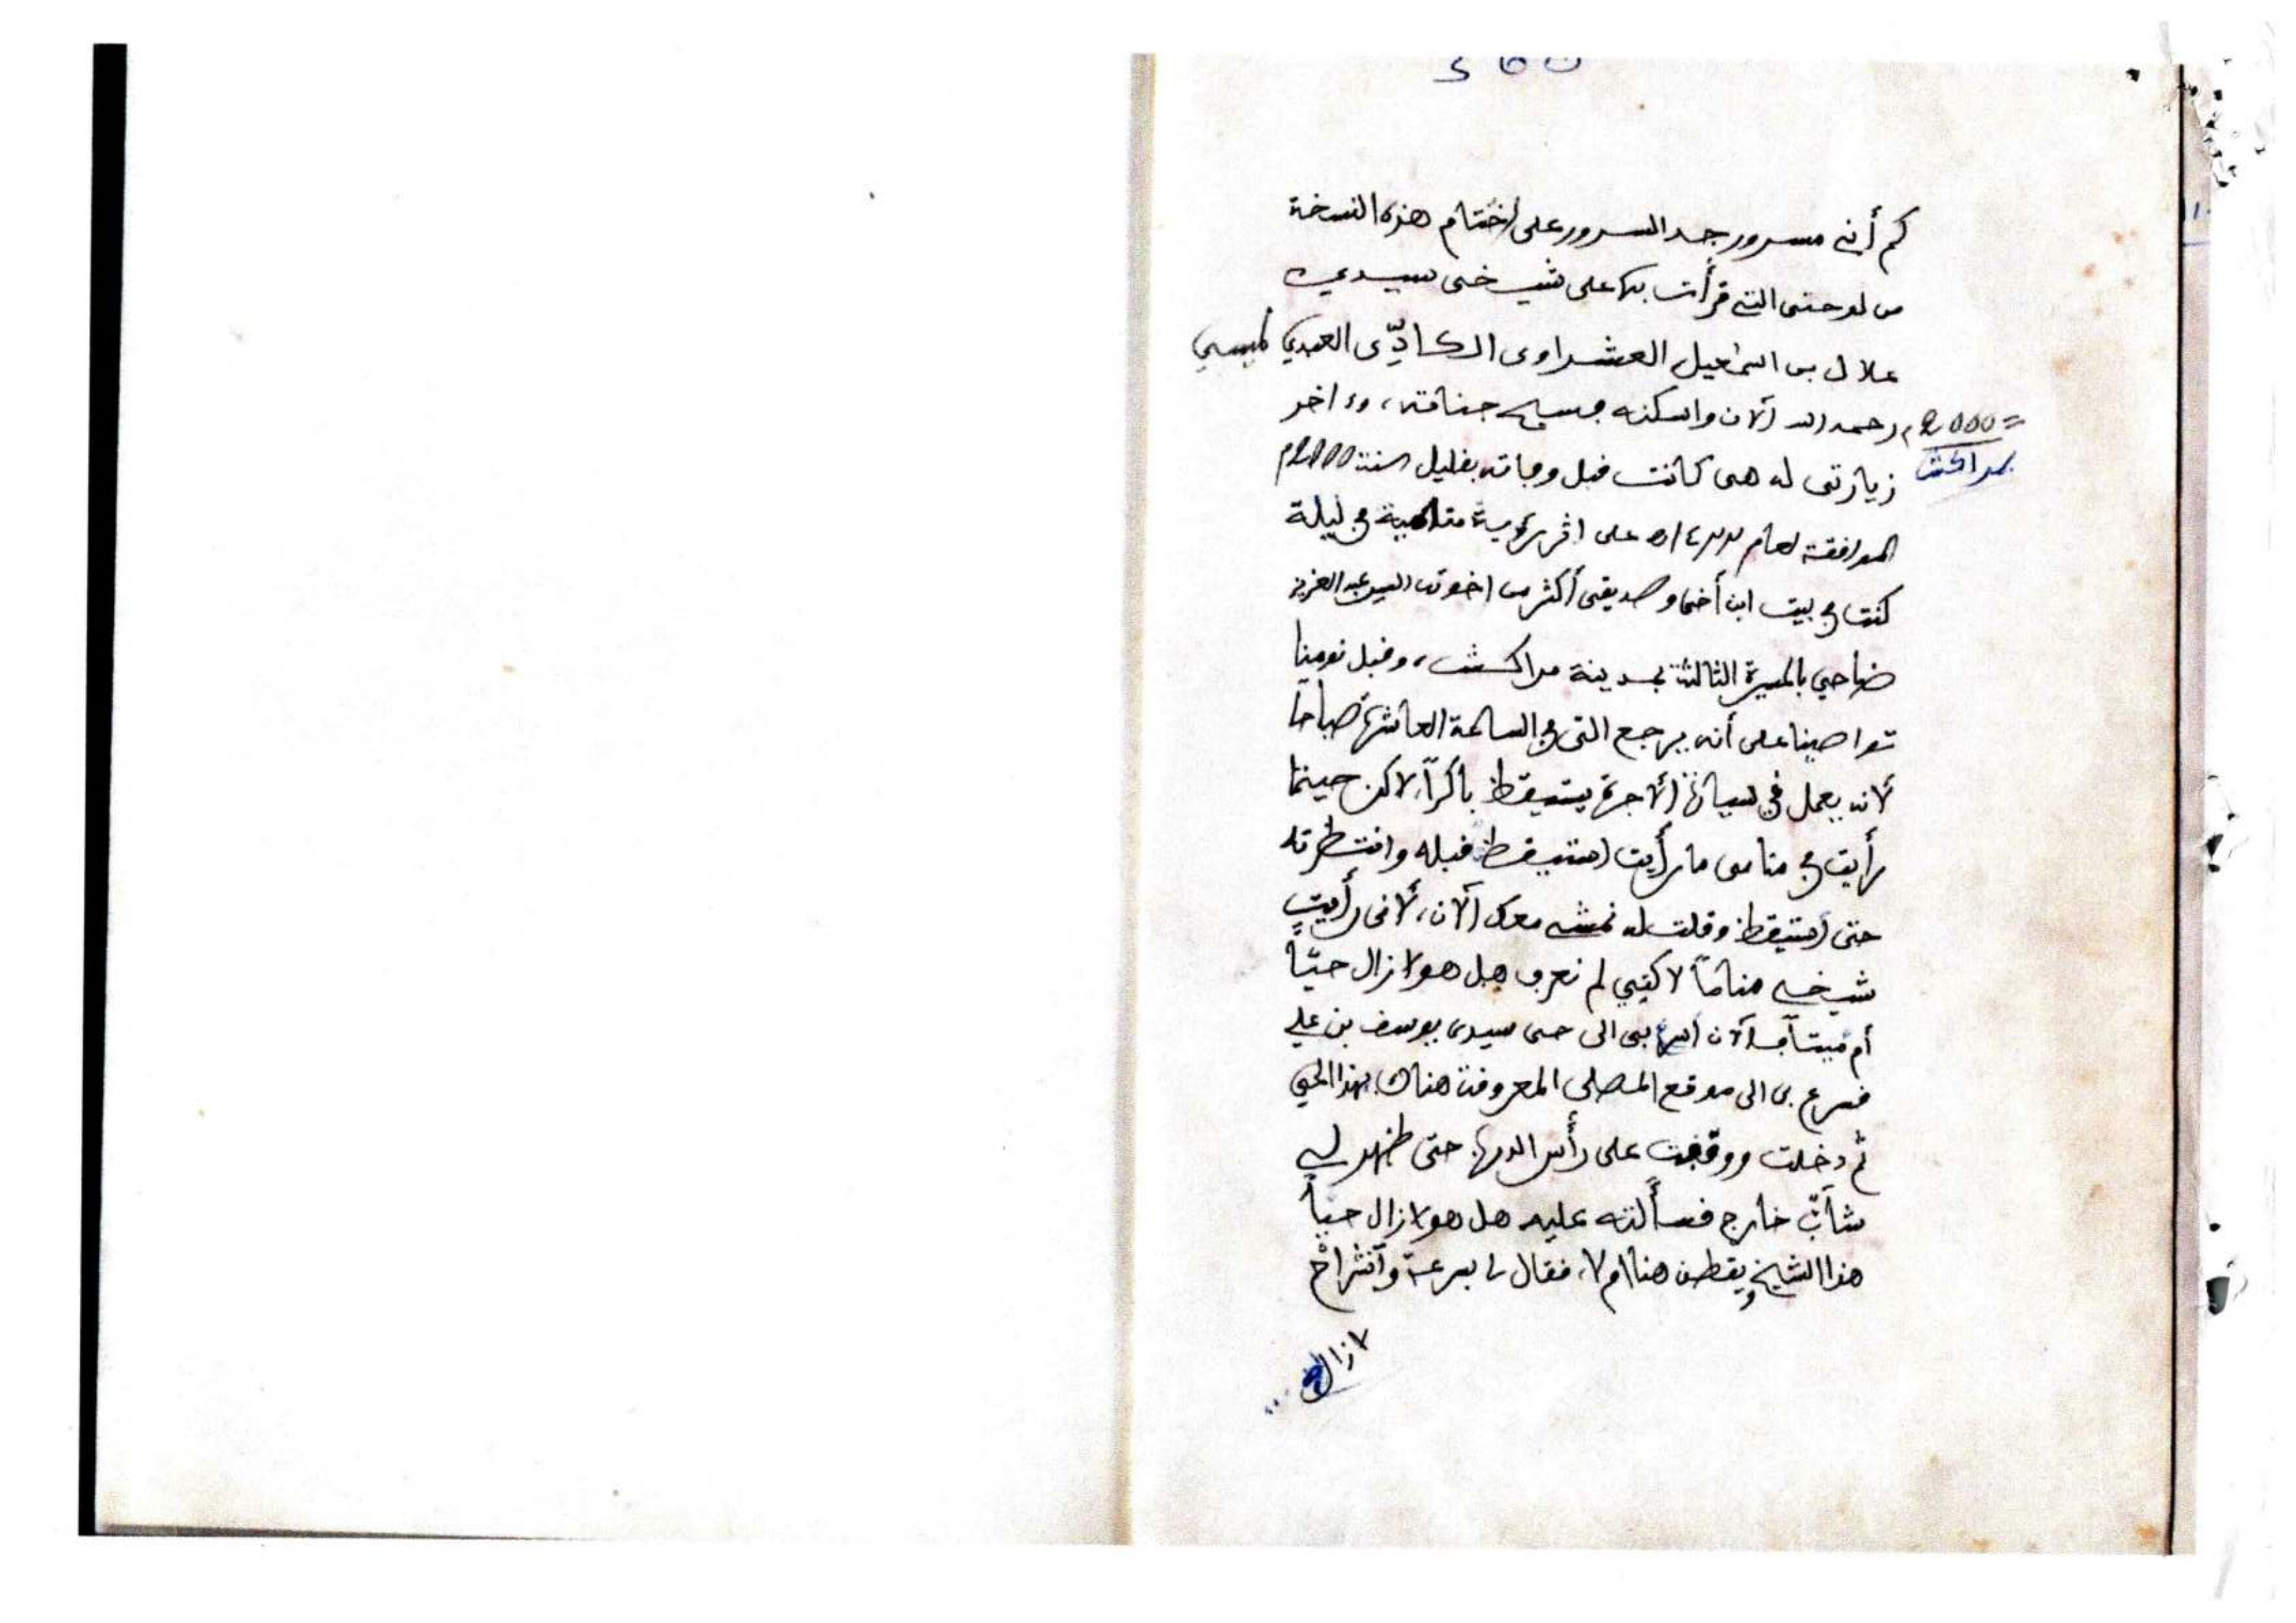 كم أني مسرور جد السرور على اختتام هذه النسخة
من لوحتى التي قرأت بها على شيخى سيدي
علال بن اسماعيل العشراوى الگادّى العبدي
رحمه الله الآن واسكنه فسيح جناته، وءاخر
=2000م
بمراكش
زيارتى له هى كانت قبل وفاته بقليل سنة 2000م
الموافقة لعام على اثر رؤية منامية في ليلة
كنت في بيت ابن أخى وصديقى أكثر من اخوته السيد عبد العزيز
ضاحي بالمسيرة الثالثة بمدينة مراكش، وقبل نومنا
تواصينا على أنه يرجع الي في الساعة العاشرة صباحا
لأنه يعمل في سيارة الأجرة يستيقظ باكراً، لاكن حينما
رأيت في منامى ما رأيت استيقظت قبله وانتظرته
حتى استيقظ وقلت له نمشي معك الآن، لأنى رأيت
شيخي مناماً لاكنني لم نعرف هل هو لازال حيّاً
أم ميتاً الآن بى الى حى سيدى يوسف بن علي
فسرع بى الى موقع المصلى المعروفة هناك بهذا الحي
ثم دخلت ووقفت على رأس الدرب حتى ظهر لي
شابٌّ خارج فسألته عليه هل هو لازال حيّاً
هذا الشيخ ويقطن هنا ام لا، فقال لى بسرعة وانشراح
لازال